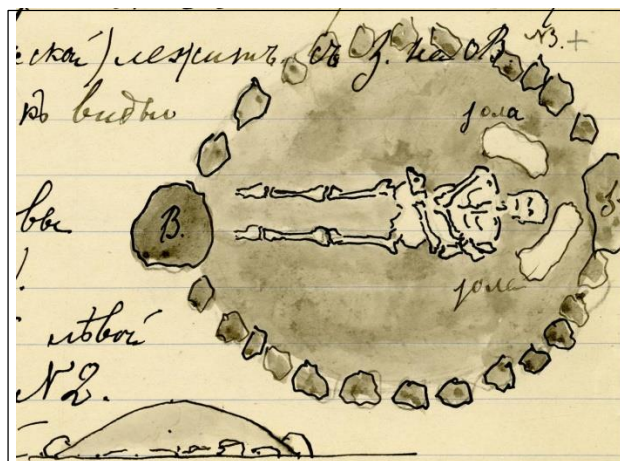 ской) лежитъ съ З. на ОВ
№3. +
въ видѣ
зола
В.
вы
зола
лѣвой
№2.